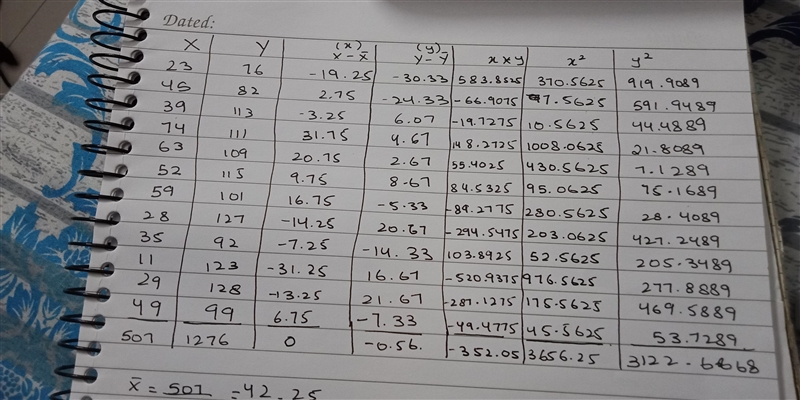 Dated:
X Y (x) X - X̄ (y) Y - Ȳ x x y x² y²
23 76 -19.25 -30.33 583.8525 370.5625 919.9089
45 82 2.75 -24.33 -66.9075 7.5625 591.9489
39 113 -3.25 6.07 -19.7275 10.5625 44.4889
74 111 31.75 4.67 148.2725 1008.0625 21.8089
63 109 20.75 2.67 55.4025 430.5625 7.1289
52 115 9.75 8.67 84.5325 95.0625 75.1689
59 101 16.75 -5.33 -89.2775 280.5625 28.4089
28 127 -14.25 20.67 -294.5475 203.0625 427.2489
35 92 -7.25 -14.33 103.8925 52.5625 205.3489
11 123 -31.25 16.67 -520.9375 976.5625 277.8889
29 128 -13.25 21.67 -287.1275 175.5625 469.5889
49 99 6.75 -7.33 -49.4775 45.5625 53.7289
507 1276 0 -0.56. -352.05 3656.25 3122.6668
X̄ = 507 = 42.25